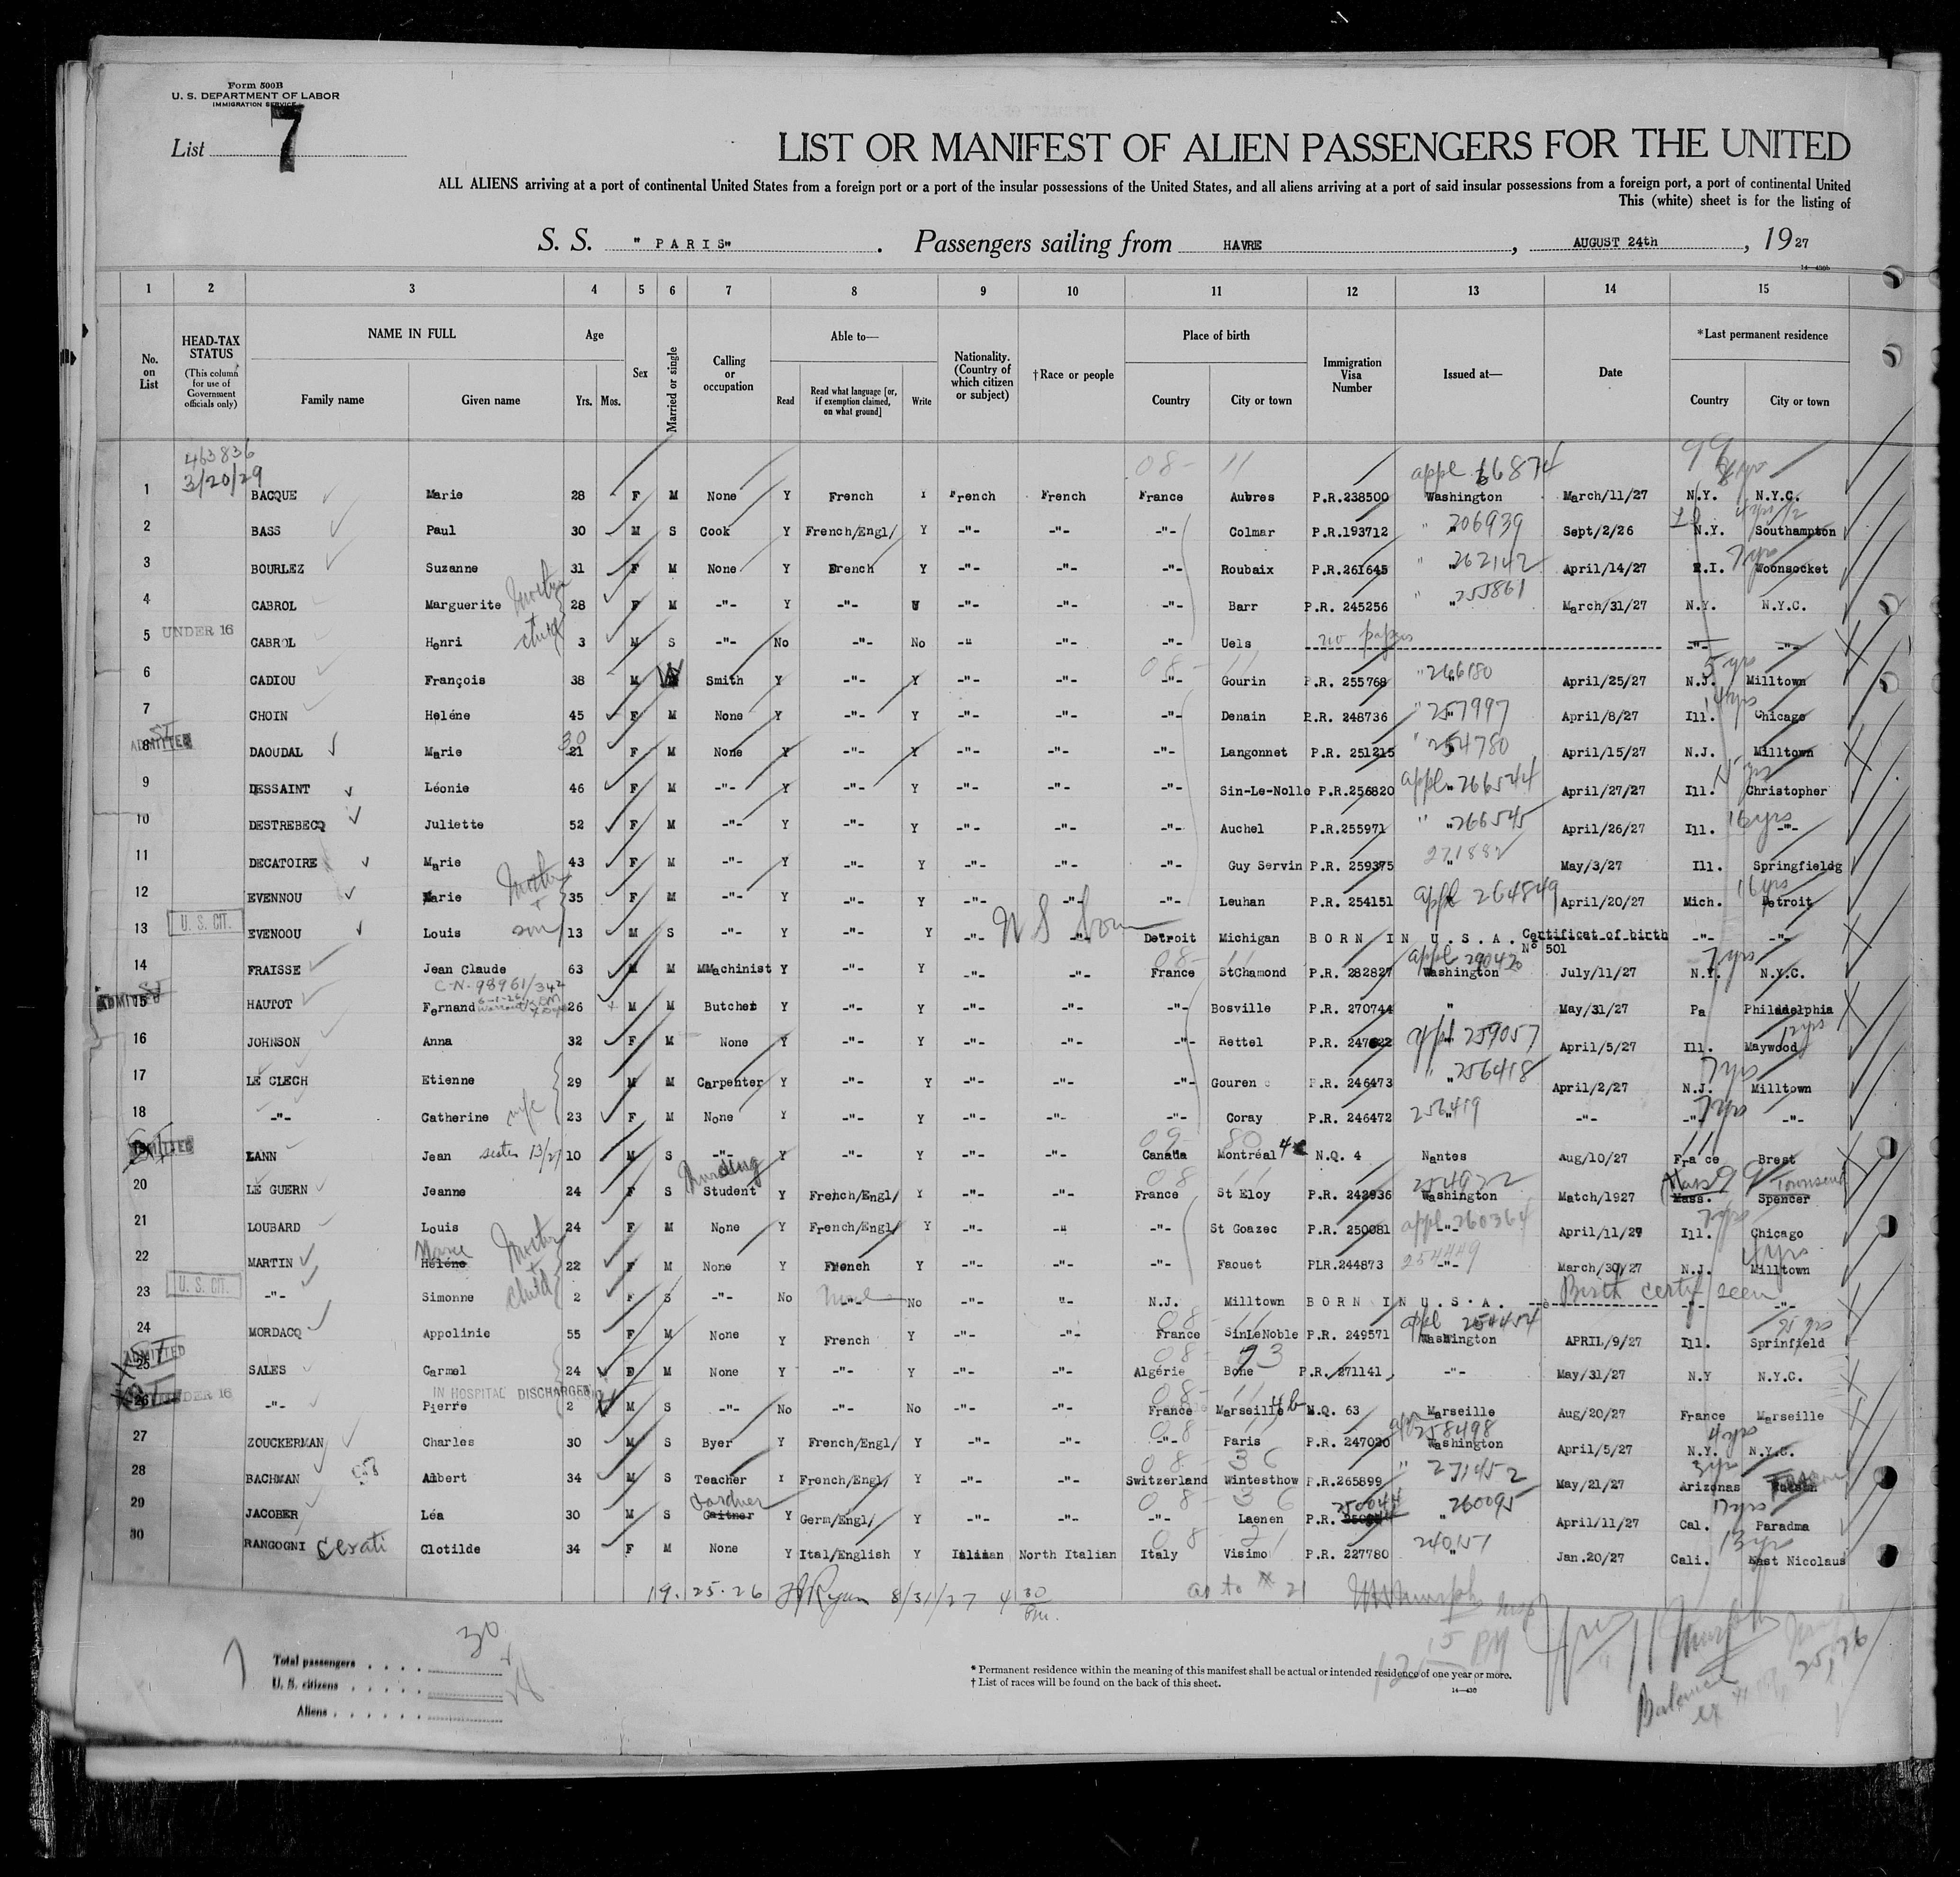 Form 500B
U. S. DEPARTMENT OF LABOR
IMMIGRATION SERVICE
List 7
LIST OR MANIFEST OF ALIEN PASSENGERS FOR THE UNITED
ALL ALIENS arriving at a port of continental United States from a foreign port or a port of the insular possessions of the United States, and all aliens arriving at a port of said insular possessions from a foreign port, a port of continental United
This (white) sheet is for the listing of
S. S. " PARIS" . Passengers sailing from HAVRE , AUGUST 24th , 1927
14—430b
1 2 3 4 5 6 7 8 9 10 11 12 13 14 15
No. on List
HEAD-TAX STATUS
(This column for use of Government officials only)
NAME IN FULL
Family name Given name
Age
Yrs. Mos.
Sex
Married or single
Calling or occupation
Able to—
Read Read what language [or, if exemption claimed, on what ground] Write
Nationality. (Country of which citizen or subject)
†Race or people
Place of birth
Country City or town
Immigration Visa Number
Issued at—
Date
*Last permanent residence
Country City or town
463836
3/20/29
08- 11 appl 66874 99
1 BACQUE Marie 28 F M None Y French Y French French France Aubres P.R.238500 Washington March/11/27 N.Y. N.Y.C.
2 BASS Paul 30 M S Cook Y French/Engl/ Y -"- -"- -"- Colmar P.R.193712 " 206939 Sept/2/26 N.Y. Southampton
3 BOURLEZ Suzanne 31 F M None Y French Y -"- -"- -"- Roubaix P.R.261645 " 262142 April/14/27 R.I. Woonsocket 7yrs
4 CABROL Marguerite Mother 28 F M -"- Y -"- Y -"- -"- -"- Barr P.R. 245256 " 255861 March/31/27 N.Y. N.Y.C.
5 UNDER 16 CABROL Henri child 3 M S -"- No -"- No -" -"- -"- Uels no papers -"- -"-
08- 11 5 yrs
6 CADIOU François 38 M W Smith Y -"- Y -"- -"- -"- Gourin P.R. 255768 " 266180 April/25/27 N.J. Milltown
7 CHOIN Heléne 45 F M None Y -"- Y -"- -"- -"- Denain P.R. 248736 " 257997 April/8/27 Ill. Chicago
ADMITTED
8 DAOUDAL Marie 30 21 F M None Y -"- Y -"- -"- -"- Langonnet P.R. 251215 " 254780 April/15/27 N.J. Milltown
9 DESSAINT Léonie 46 F M -"- Y -"- Y -"- -"- -"- Sin-Le-Nolle P.R.256820 appl 266544 April/27/27 Ill. Christopher
10 DESTREBECQ Juliette 52 F M -"- Y -"- Y -"- -"- -"- Auchel P.R.255971 " 266545 April/26/27 Ill. 16yrs -"-
11 DECATOIRE Marie 43 F M -"- Y -"- Y -"- -"- -"- Guy Servin P.R. 259375 271882 May/3/27 Ill. Springfieldg
12 EVENNOU Marie Mother + 35 F M -"- Y -"- Y -"- -"- -"- Leuhan P.R. 254151 appl 264849 April/20/27 Mich. Detroit 16yrs
13 U. S. CIT. EVENOOU Louis son 13 M S -"- Y -"- Y -"- U S born -"- Detroit Michigan BORN IN U.S.A. Certificat of birth N° 501 -"- -"-
14 FRAISSE Jean Claude 63 M M MMachinist Y -"- Y -"- -"- France StChamond P.R. 282827 appl 290420 Washington July/11/27 N.Y. N.Y.C. 7yrs
C-N-98961/342
ADMITTED
15 HAUTOT Fernand 26 M M Butcher Y -"- Y -"- -"- -"- Bosville P.R. 270744 " May/31/27 Pa Philadelphia
16 JOHNSON Anna 32 F M None Y -"- Y -"- -"- -"- Rettel P.R. 247622 appl 259057 April/5/27 Ill. Maywood 12yrs
17 LE CLECH Etienne 29 M M Carpenter Y -"- Y -"- -"- -"- Gouren P.R. 246473 " 256418 April/2/27 N.J. Milltown 7yrs
18 -"- Catherine wife 23 F M None Y -"- Y -"- -"- -"- Coray P.R. 246472 256419 -"- -"- 7yrs -"-
ADMITTED
19 LANN Jean 10 M S -"- Y -"- Y -"- -"- Canada Montréal N.Q. 4 Nantes Aug/10/27 Fra ce Brest
20 LE GUERN Jeanne 24 F S Nursing Student Y French/Engl/ Y -"- -"- France St Eloy P.R. 242936 254922 Washington Match/1927 Mass. Mass. Spencer Townsend
21 LOUBARD Louis 24 F M None Y French/Engl/ Y -"- -" -"- St Goazec P.R. 250081 appl 260364 -"- April/11/27 Ill. Chicago
22 MARTIN Marie Héléne Mother + 22 F M None Y French Y -"- -"- -"- Faouet PLR.244873 254449 -"- March/30/27 N.J. Milltown
23 U. S. CIT. -"- Simonne child 2 F S -"- No -"- No -"- "- N.J. Milltown BORN IN U.S.A. Birth certf seen -"- -"-
24 MORDACQ Appolinie 55 F M None Y French Y -"- -"- France SinLeNoble P.R. 249571 appl 254454 Washington APRIL/9/27 Ill. Sprinfield
ADMITTED
25 SALES Carmel 24 F M None Y -"- Y -"- -"- Algérie Bone P.R. 271141 -"- May/31/27 N.Y N.Y.C.
IN HOSPITAL DISCHARGED
26 UNDER 16 -"- Pierre 2 M S -"- No -"- No -"- -"- France Marseille N.Q. 63 Marseille Aug/20/27 France Marseille
27 ZOUCKERMAN Charles 30 M S Byer Y French/Engl/ Y -"- -"- -"- Paris P.R. 247020 258498 Washington April/5/27 N.Y. N.Y.C. 4yrs
28 BACHMAN Albert 34 M S Teacher Y French/Engl/ Y -"- -"- Switzerland Wintesthow P.R.265899 " 271452 May/21/27 Arizonas 3yrs
29 JACOBER Léa 30 M S Gardner Gaitner Y Germ/Engl/ Y -"- -"- -"- Laenen P.R. 250044 " 260095 April/11/27 Cal. Paradma 17yrs
30 RANGOGNI Cerati Clotilde 34 F M None Y Ital/English Y Italian North Italian Italy Visimo P.R. 227780 240151 " Jan.20/27 Cali. East Nicolaus 13yrs
19. 25. 26 Ryan 8/31/27 4 30 Pm. as to # 21
Total passengers . . . . 30
U. S. citizens . . . . .
Aliens . . . . . .
* Permanent residence within the meaning of this manifest shall be actual or intended residence of one year or more.
† List of races will be found on the back of this sheet.
14—430
Balance
25, 26